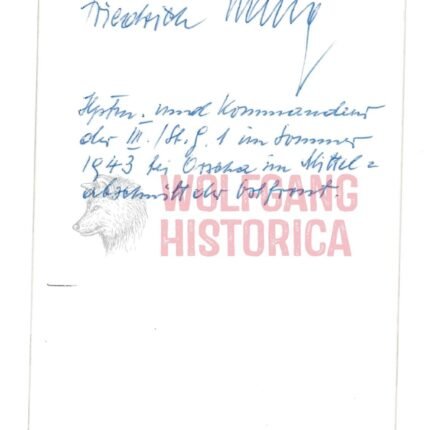 Friedrich Lang
Hptm. und Kommandeur
der III./St.G. 1 im Sommer
1943 bei Orscha im Mittel=
abschnitt der Ostfront.
WOLFGANG
HISTORICA